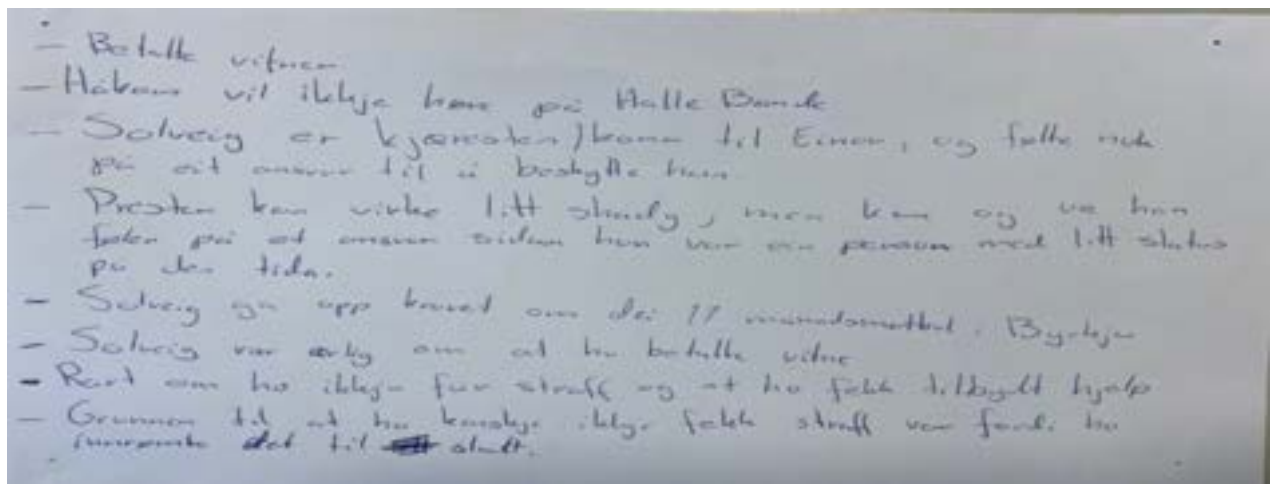 - Betalte vitner
- Håkon vil ikkje høre på Halle Bonde
- Solveig er kjæresten/kona til Einar, og følte nok
på eit ansvar til å beskytte han.
- Presten kan virke litt shady, men kan og va han
føler på et ansvar sidan han var ein person med litt status
på den tida.
- Solveig ga opp kravet om dei 17 månadsmatbol. Byrkje
- Solveig var ærlig om at ho betalte vitne
- Rart om ho ikkje får straff og at ho fekk tilbydt hjelp
- Grunnen til at ho kanskje ikkje fekk straff var fordi ho
innrømte det til slutt.